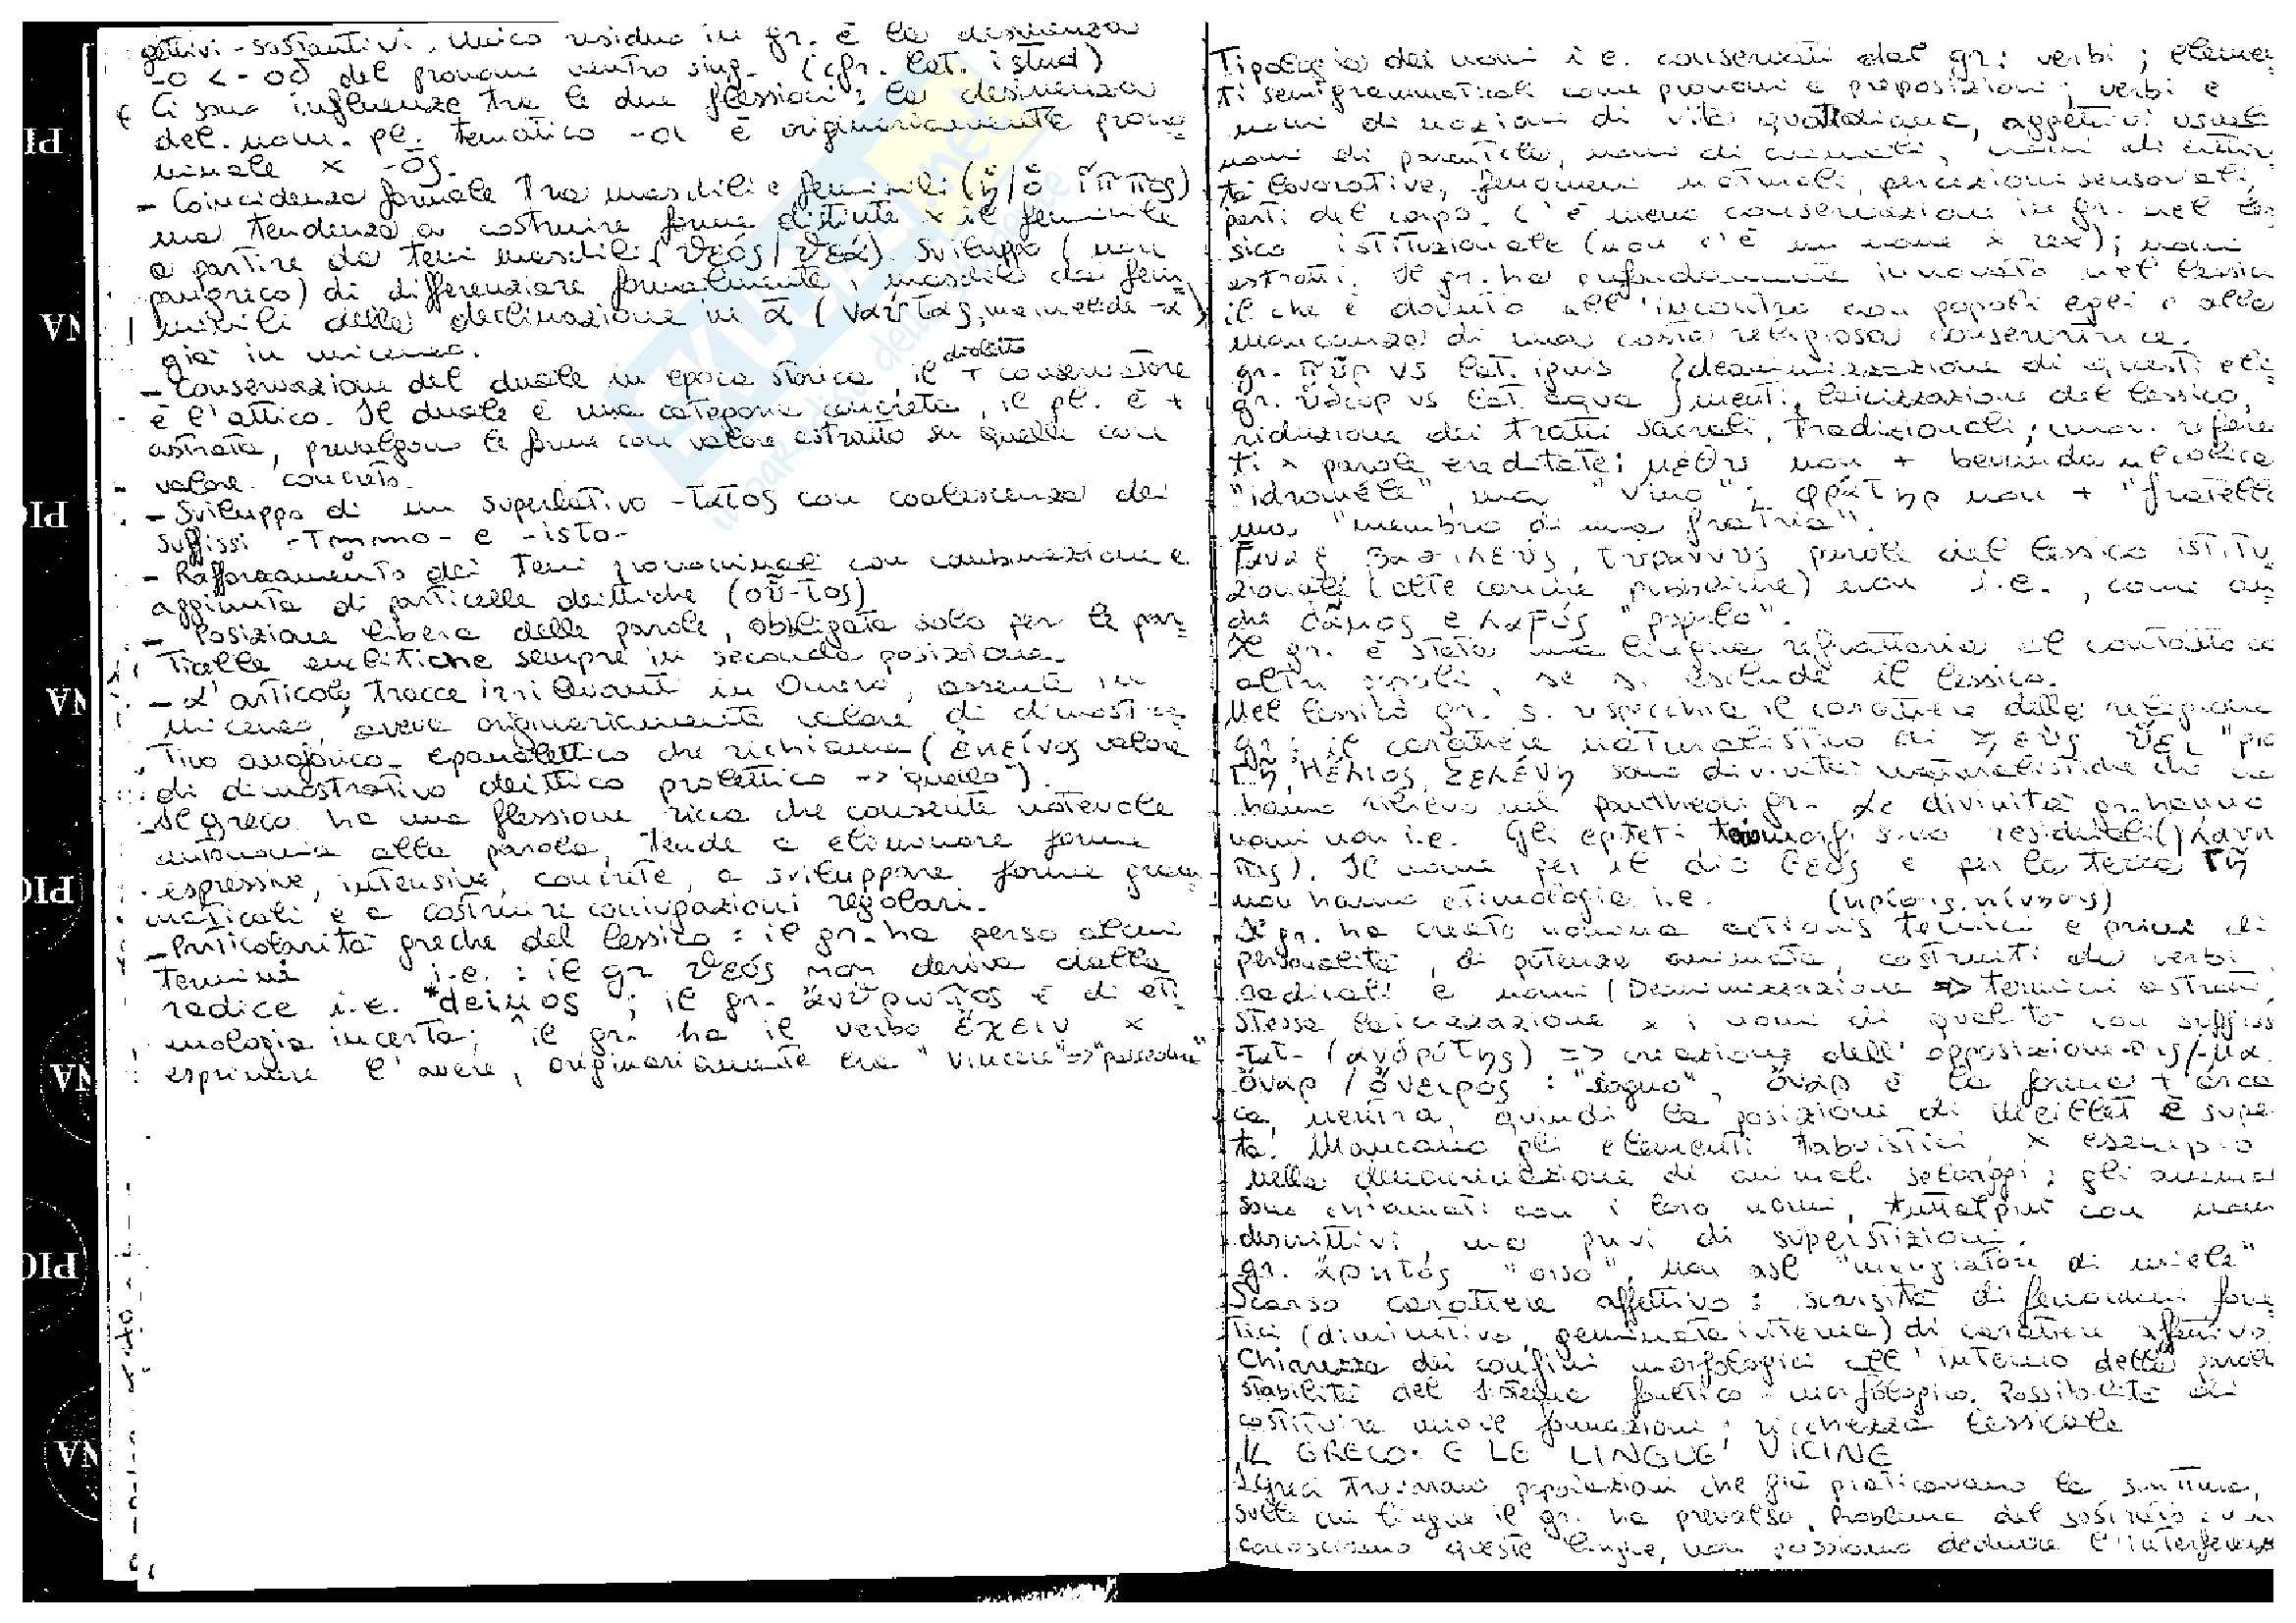 gettivi-sostantivi. Unico residuo in gr. è la desinenza
-o < -oδ del pronome neutro sing. (cfr. lat. istud)
Ci sono influenze tra le due flessioni: la desinenza
del nom. pl. tematico -oi è originariamente prono=
minale x -ōs.
- Coincidenza formale tra maschili e femminili (ἡ/ὁ ἵππος)
ma tendenza a costruire forme distinte x il femminile
a partire da temi maschili (θεός/θεά). Sviluppo (non
pangreco) di differenziare formalmente i maschili dai fem=
minili della declinazione in ᾱ (ναύτας, ma
già in miceneo.
- Conservazione del duale in epoca storica, il dialetto + conservatore
è l'attico. Il duale è una categoria concreta, il pl. è +
astratta, prevalgono le forme con valore astratto su quelle con
valore concreto.
- Sviluppo di un superlativo -τατος con coalescenza dei
suffissi -Tṃmo- e -isto-
- Rafforzamento dei temi pronominali con combinazione e
aggiunta di particelle deittiche (οὗ-τος)
- Posizione libera delle parole, obbligata solo per le par=
ticelle enclitiche sempre in seconda posizione.
- L'articolo, tracce irrilevanti in Omero, assente in
miceneo, aveva originariamente valore di dimostra=
tivo anaforico-epanalettico che richiama (ἐκεῖνος valore
di dimostrativo deittico prolettico -> "quello").
- Il greco ha una flessione ricca che consente notevole
autonomia alla parola, tende a eliminare forme
espressive, intensive, concrete, a sviluppare forme gram=
maticali e a costruire coniugazioni regolari.
- Particolarità greche del lessico: il gr. ha perso alcuni
termini i.e.: il gr θεός non deriva dalla
radice i.e. *deiuos; il gr. ἄνθρωπος è di eti
mologia incerta; il gr. ha il verbo ἔχειν x
esprimere l'avere, originariamente era "vincere"=>"possedere"
Tipologia dei nomi i.e. conservati dal gr: verbi; elemen
ti semigrammaticali come pronomi e preposizioni; verbi e
nomi di nozioni di vita quotidiana, aggettivi usuali
nomi di parentela, nomi di animali, nomi di attivi
tà lavorative, fenomeni naturali, percezioni sensoriali,
parti del corpo. C'è meno conservazione in gr. nel les
sico istituzionale (non c'è un nome x rex); nomi
astratti. Il gr. ha profondamente innovato nel lessico
il che è dovuto all'incontro con popoli egei e alla
mancanza di una casta religiosa conservatrice.
gr. πῦρ vs lat. ignis } deanimizzazione di questi ele
gr. ὕδωρ vs lat. aqua } menti, laicizzazione del lessico,
riduzione dei tratti sacrali, tradizionali; nuovi referen
ti x parole ereditate: μέθυ non + bevanda alcolica
"idromele", ma "vino"; φράτηρ non + "fratello
ma "membro di una fratria".
ϝάναξ βασιλεύς, τύραννος parole del lessico istitu
zionale (alte cariche politiche) non i.e., come an
che δᾶμος e λαϝός "popolo".
Il gr. è stata una lingua refrattaria al contatto co
altri popoli, se si esclude il lessico.
Nel lessico gr. si rispecchia il carattere della religione
gr: il carattere naturalistico di Ζεύς
Γῆ, Ἥλιος, Σελήνη sono divinità naturalistiche che no
hanno rilievo nel pantheon gr. Le divinità gr. hanno
nomi non i.e. Gli epiteti teriomorfi sono residuali (γλαυκ
πις). Il nome per il dio θεός e per la terra Γῆ
non hanno etimologia i.e.
Il gr. ha creato nomina actionis tecnici e privi di
personalità, di potenze animate, costruiti da verbi
radicali e nomi (Deanimizzazione => termini astratti,
stessa laicizzazione x i nomi di qualità con suffiss
-tat- (ἀνδρότης) => creazione dell'opposizione -σις/-μα.
ὄναρ / ὄνειρος : "sogno", ὄναρ è la forma + arca
ca, neutra, quindi la posizione di Meillet è supe
ta. Mancano gli elementi tabuistici x esempio
nella denominazione di animali selvaggi: gli anima
sono chiamati con i loro nomi, tuttalpiù con nomi
descrittivi, ma privi di superstizioni.
gr. ἄρκτος "orso", non asl "mangiatore di miele"
Scarso carattere affettivo: scarsità di fenomeni fone
tici (diminutivo, geminata interna) di carattere affettivo.
Chiarezza dei confini morfologici all'interno della parola
stabilità del sistema fonetico-morfologico. Possibilità di
costituire nuove formazioni; ricchezza lessicale
IL GRECO E LE LINGUE VICINE
I greci trovarono popolazioni che già praticavano la scrittura,
sulle cui lingue il gr. ha prevalso. Problema del sostrato: non
conosciamo queste lingue, non possiamo dedurre l'interferenza